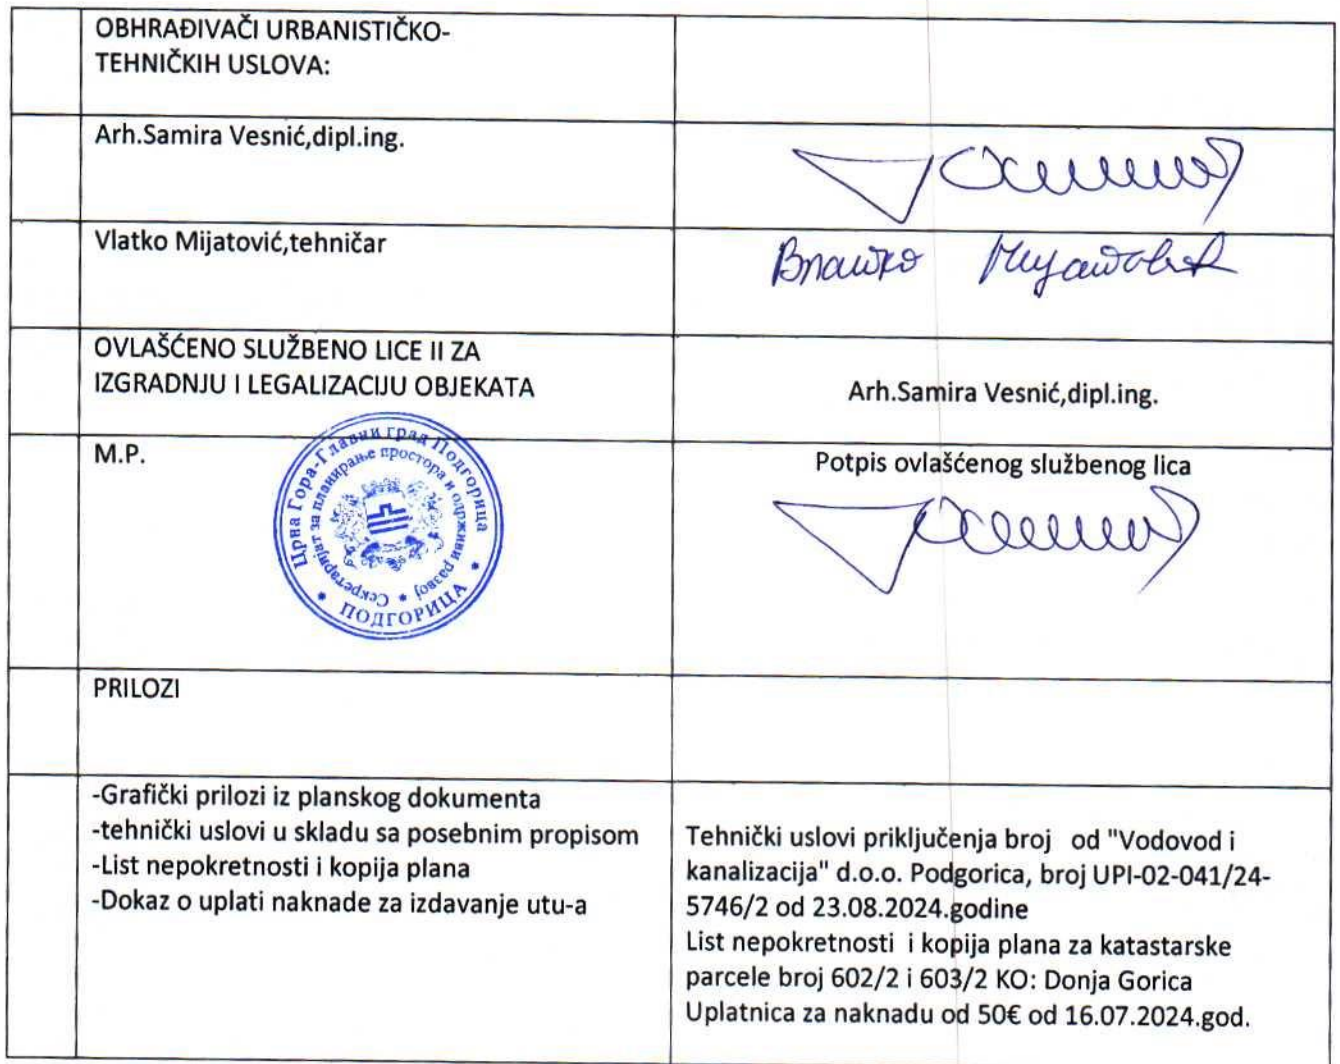 OBHRAĐIVAČI URBANISTIČKO-
TEHNIČKIH USLOVA:
Arh.Samira Vesnić,dipl.ing.
Vlatko Mijatović,tehničar
Влатко Мијатовић
OVLAŠĆENO SLUŽBENO LICE II ZA
IZGRADNJU I LEGALIZACIJU OBJEKATA
Arh.Samira Vesnić,dipl.ing.
M.P.
Црна Гора-Главни град Подгорица
Секретаријат за планирање простора и одрживи развој
ПОДГОРИЦА
Potpis ovlašćenog službenog lica
PRILOZI
-Grafički prilozi iz planskog dokumenta
-tehnički uslovi u skladu sa posebnim propisom
-List nepokretnosti i kopija plana
-Dokaz o uplati naknade za izdavanje utu-a
Tehnički uslovi priključenja broj   od "Vodovod i
kanalizacija" d.o.o. Podgorica, broj UPI-02-041/24-
5746/2 od 23.08.2024.godine
List nepokretnosti  i kopija plana za katastarske
parcele broj 602/2 i 603/2 KO: Donja Gorica
Uplatnica za naknadu od 50€ od 16.07.2024.god.